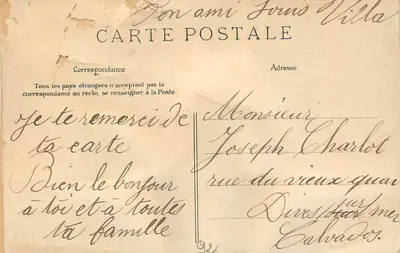 Ton ami Louis Villa
CARTE POSTALE
Correspondance
Tous les pays étrangers n'acceptent pas la
correspondance au recto, se renseigner à la Poste.
Je te remerci de
ta carte
Bien le bonjour
à toi et à toutes
ta famille
Adresse
Monsieur
Joseph Charlot
rue du vieux quai
Dives sur mer
Calvados.
92